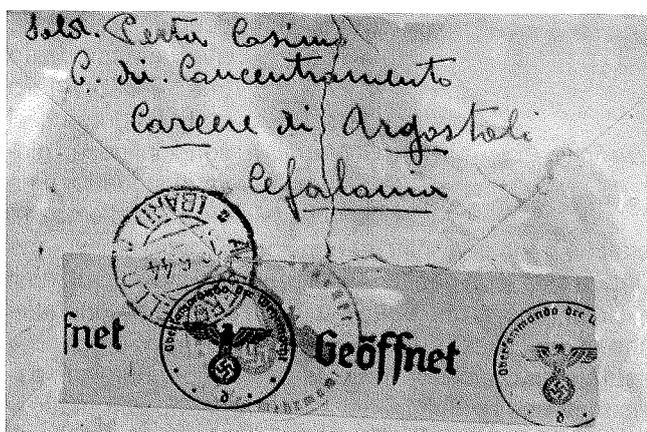 Sold. Perta Cosimo
C. di. Concentramento
Carcere di Argostoli
Cefalonia
(BARI)
6.44
fnet
Oberkommando der Wehrmacht
Geöffnet
Oberkommando der